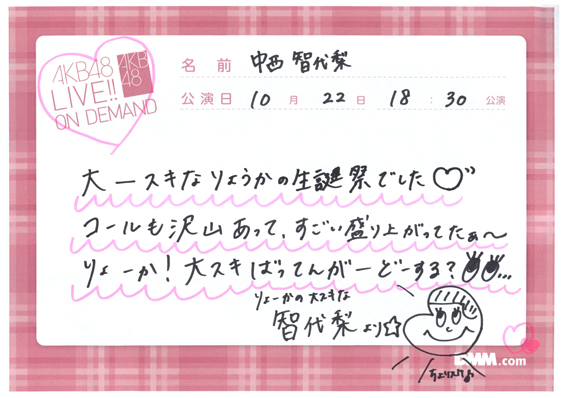 AKB48
LIVE!!
ON DEMAND
AKB
48
名前 中西 智代梨
公演日 10月 22日 18:30公演
大ースキなりょうかの生誕祭でした♡”
コールも沢山あって、すごい盛り上がってたぁ〜
りょーか!大スキばってんがーどーする?
りょーかの大スキな
智代梨より☆
DMM.com